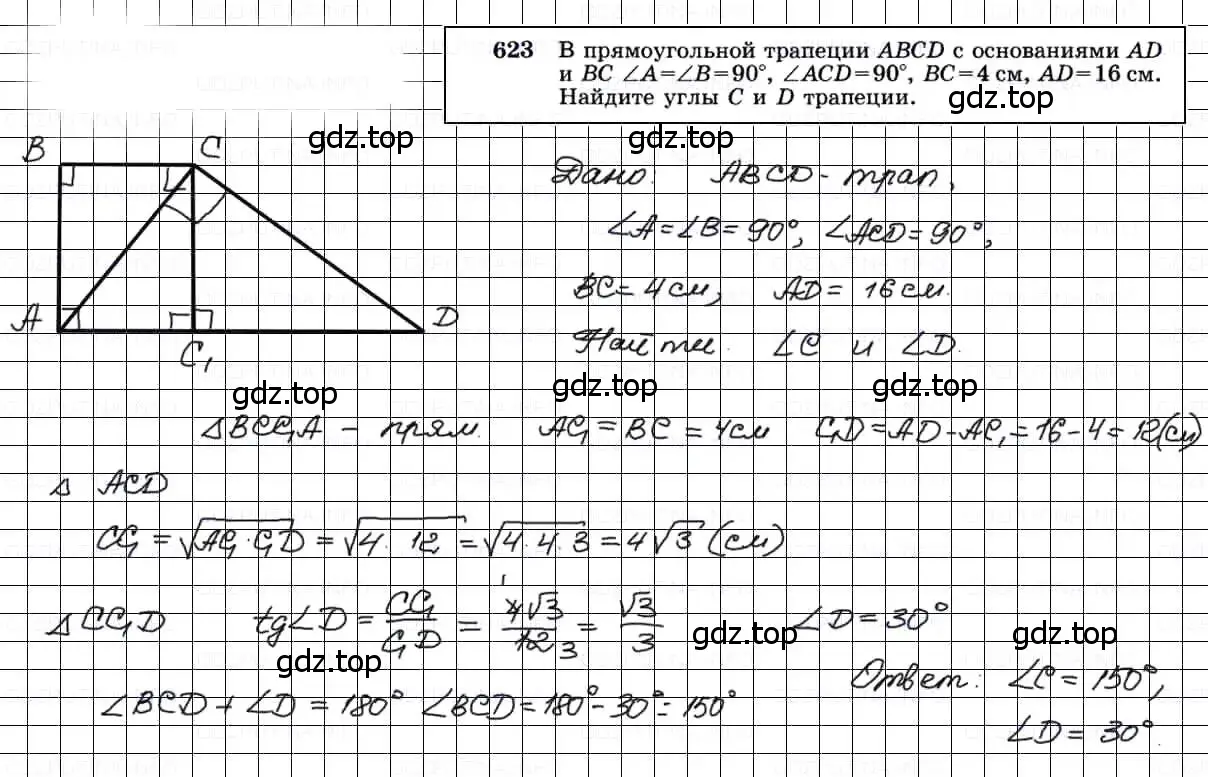 623 В прямоугольной трапеции ABCD с основаниями AD
и BC ∠A=∠B=90°, ∠ACD=90°, BC=4 см, AD=16 см.
Найдите углы C и D трапеции.
gdz.top
gdz.top
gdz.top
B
C
A
D
C₁
Дано: ABCD - трап,
∠A=∠B=90°, ∠ACD=90°,
BC=4 см, AD= 16 см.
Найти. ∠C и ∠D.
gdz.top
gdz.top
gdz.top
△BCC₁A - прям. AC₁=BC=4см C₁D=AD-AC₁=16-4=12(см)
△ ACD
CC₁ = √AC₁·C₁D = √4·12 = √4·4·3 = 4√3 (см)
△CC₁D tg∠D = CC₁/C₁D = 4√3/12 = √3/3 ∠D=30°
1
3
gdz.top
gdz.top
gdz.top
∠BCD+∠D=180° ∠BCD=180°-30°=150°
Ответ: ∠C=150°,
∠D= 30°